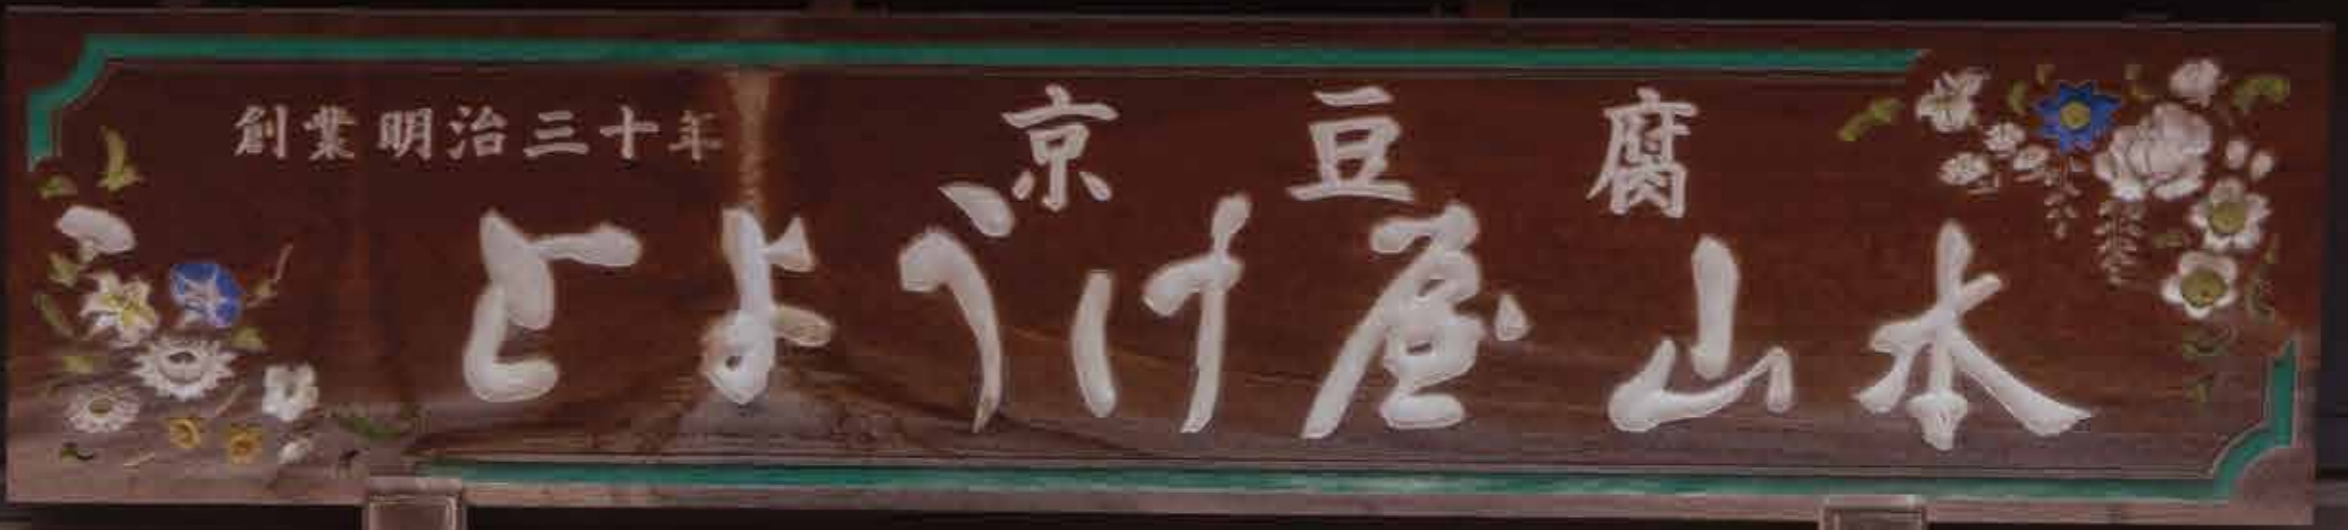 創業明治三十年
京豆腐
とようけ屋山本